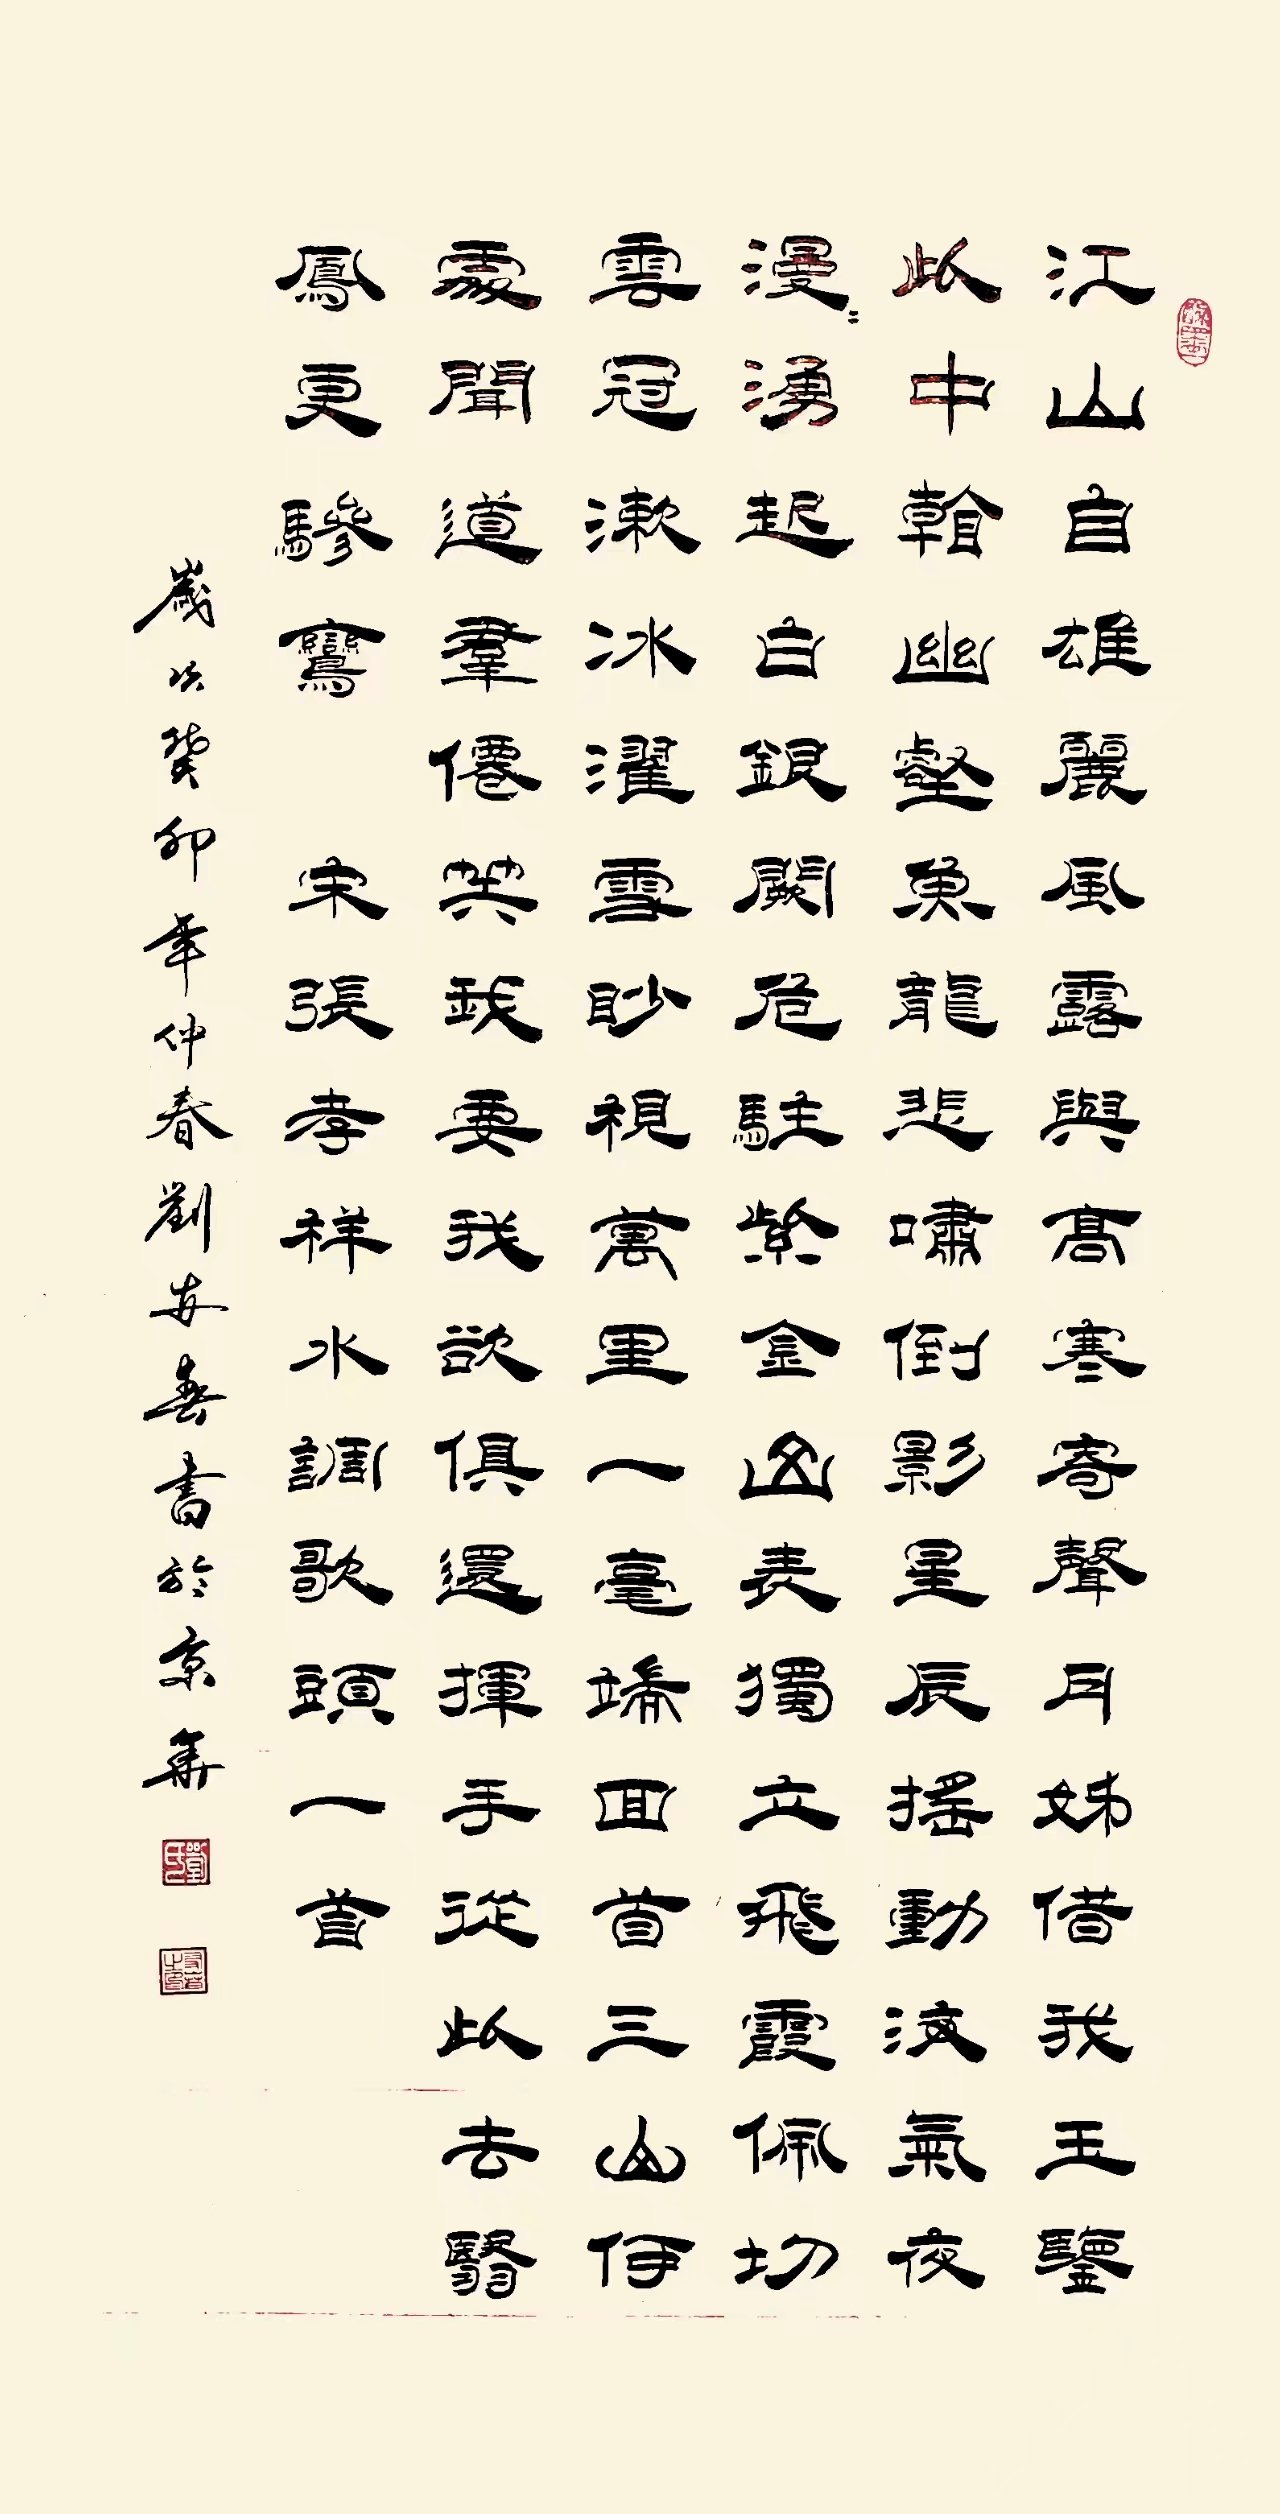 江山自雄麗風露與高寒寄聲月姊借我玉鑒
此中看幽壑魚龍悲嘯倒影星辰搖動海氣夜
漫〻湧起白銀闕危駐紫金山表獨立飛霞佩切
雲冠漱冰濯雪眇視萬里一毫端回首三山何
處聞道羣僊笑我要我欲俱還揮手從此去翳
鳳更驂鸞 宋張孝祥水調歌頭一首
歲次癸卯年仲春劉安書於京華